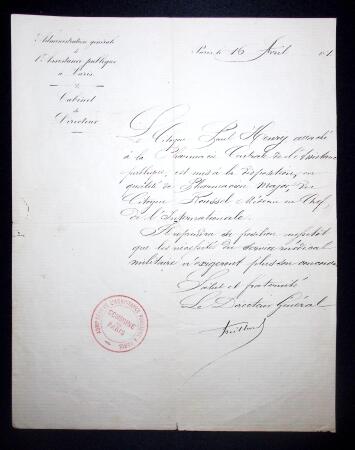 Administration générale
de
l'Assistance publique
à Paris.
Cabinet
du
Directeur
Paris, le 16 Avril 1871
Le Citoyen Paul Henry attaché
à la Pharmacie Centrale de l'Assistance
publique, est mis à la disposition, en
qualité de Pharmacien Major, du
Citoyen Roussel Médecin en Chef
de l'Internationale.
Il reprendra sa position aussitôt
que les nécessités du service médical
militaire n'exigeront plus son concours
Salut et fraternité
Le Directeur Général
COMMUNE
DE
PARIS